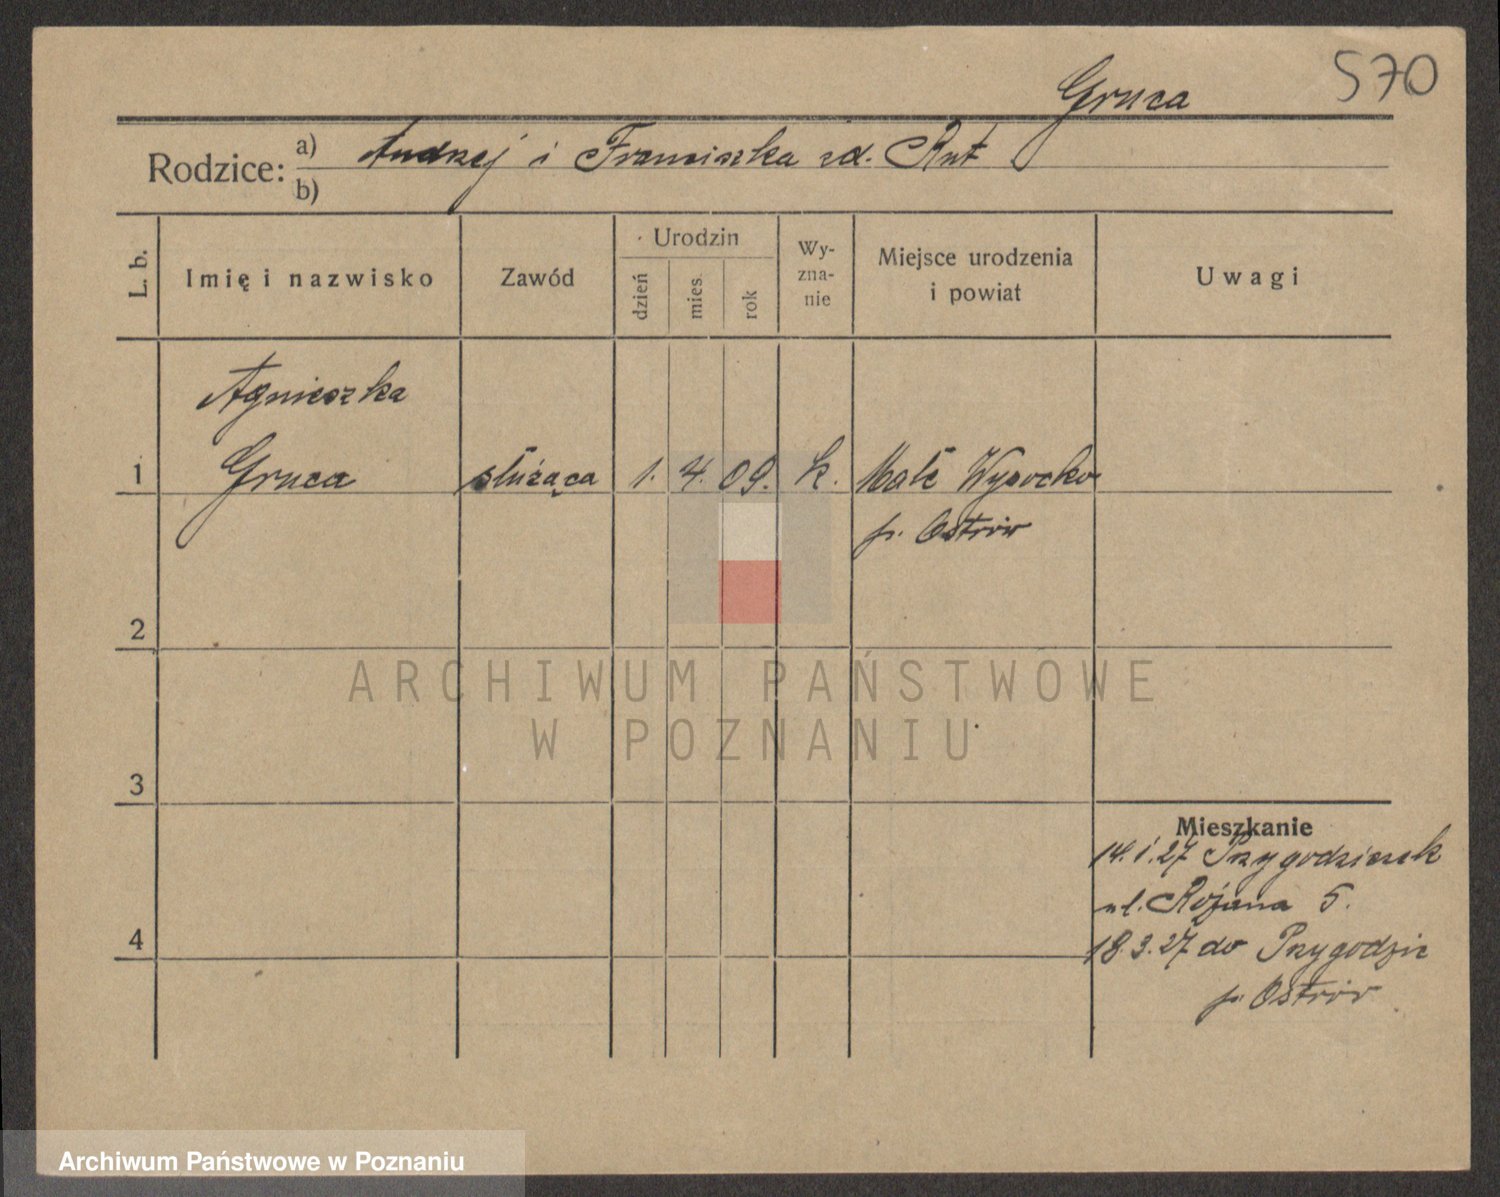 Gruca
570
Rodzice:
a) Andrzej i Franciszka zd. Rut
b)
L. b.
Imię i nazwisko
Zawód
Urodzin
dzień
mies.
rok
Wy-
zna-
nie
Miejsce urodzenia
i powiat
Uwagi
Agnieszka
1 Gruca służąca 1. 4. 09. k. Małe Wysocko
p. Ostrów
2
3
4
Mieszkanie
14.1.27
ul. Różana 5.
18.3.27 do Przygodzic
p. Ostrów
ARCHIWUM PAŃSTWOWE
W POZNANIU
Archiwum Państwowe w Poznaniu